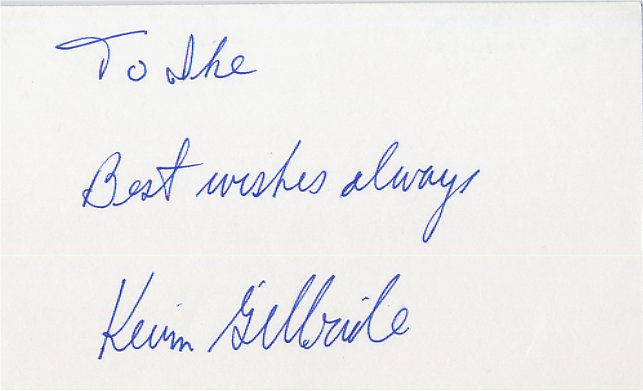 To Ike
Best wishes always
Kevin Gilbride